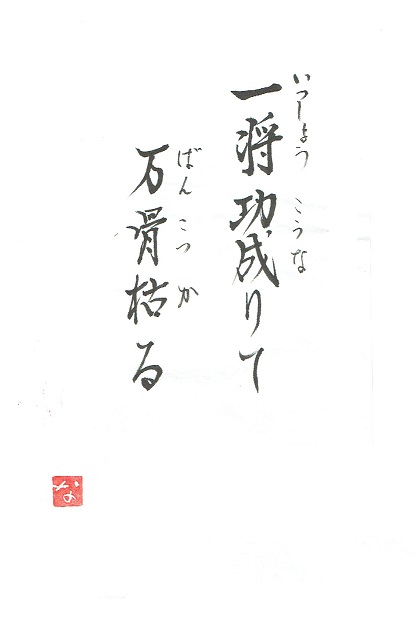 一将功成りて
いっしょう こうな
万骨枯る
ばんこつ か
な